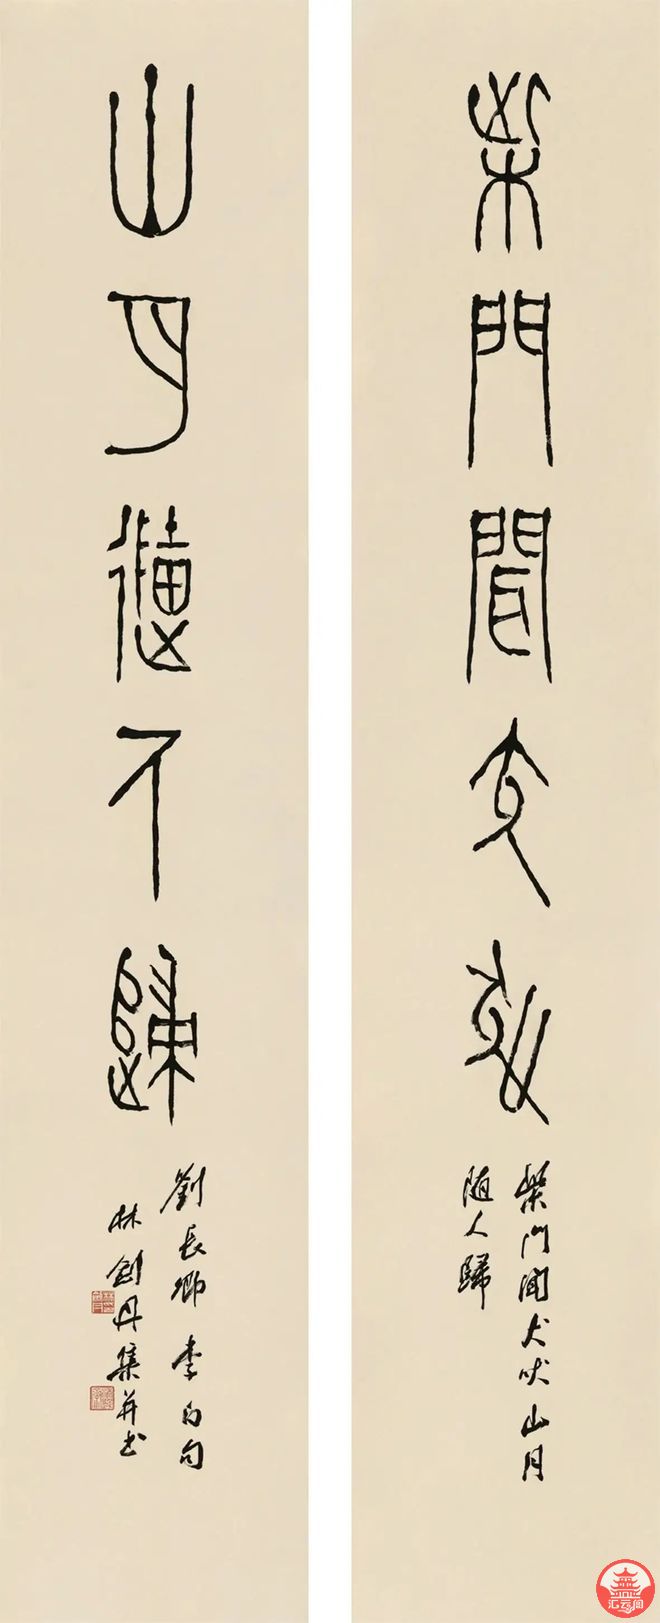 柴門聞犬吠
柴門聞犬吠山月
随人歸
山月随人歸
劉長卿李白句
林劍丹集并书
汇云阁